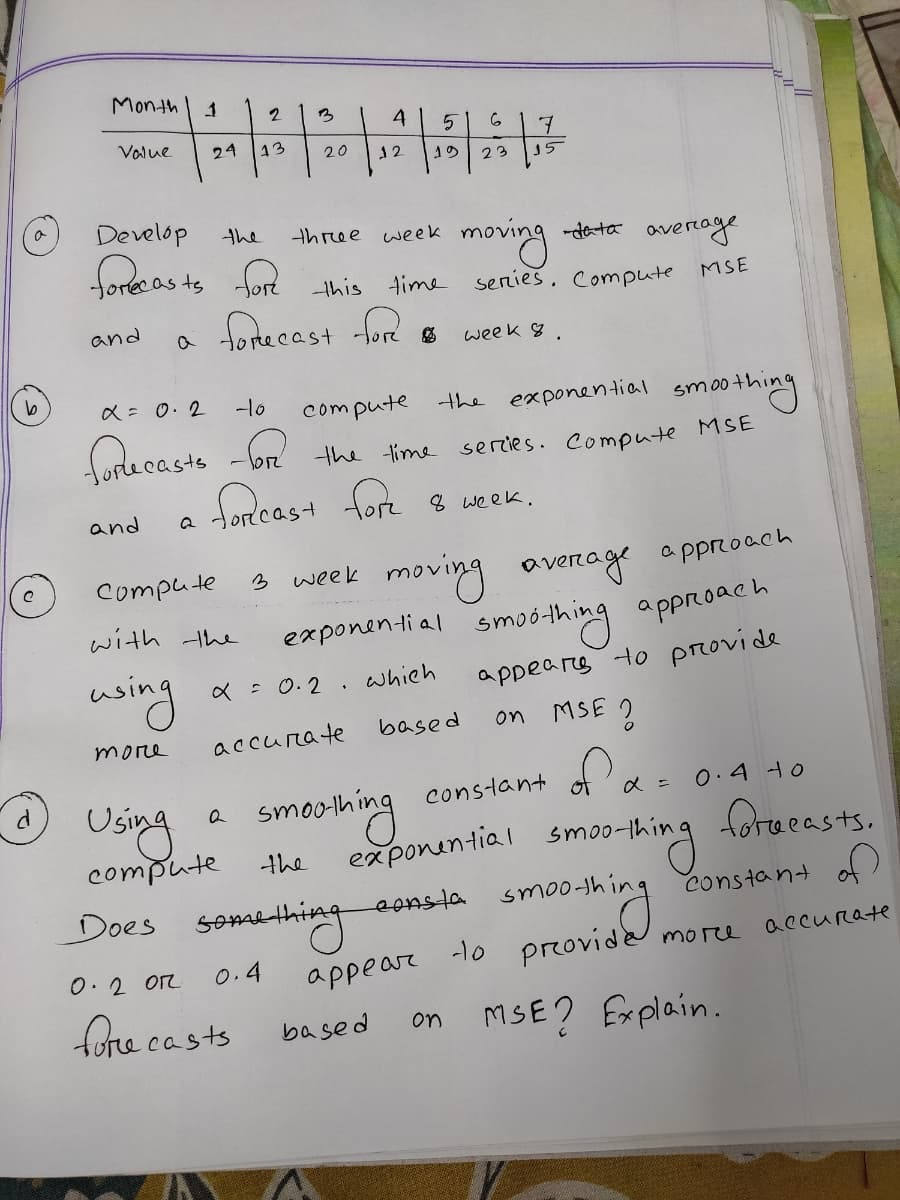 Month 1 2 3 4 5 6 7
Value 24 13 20 12 19 23 15
a Develop the three week moving data average
forecasts for this time series. Compute MSE
and a forecast for week 8.
b α = 0.2 to compute the exponential smoothing
forecasts for the time series. Compute MSE
and a forcast for 8 week.
c Compute 3 week moving average approach
with the exponential smoothing approach
using α = 0.2. which appears to provide
more accurate based on MSE?
d Using a smoothing constant of α = 0.4 to
compute the exponential smoothing forecasts.
Does something consta smoothing constant of
0.2 or 0.4 appear to provide more accurate
forecasts based on MSE? Explain.